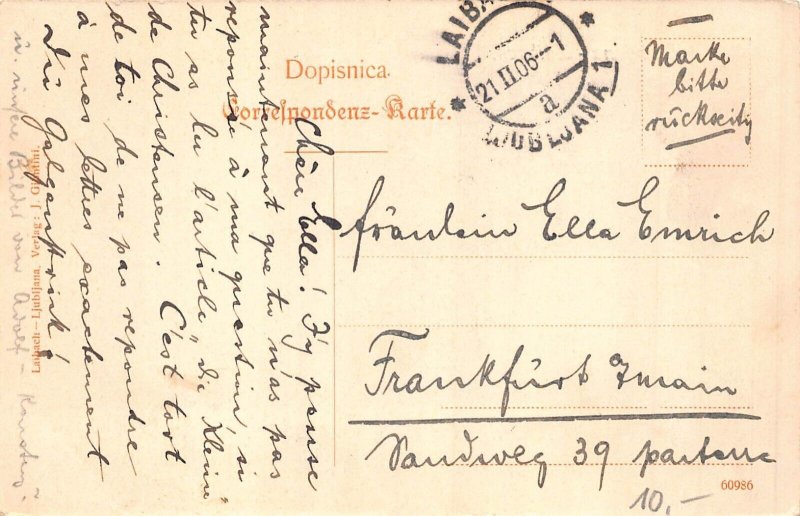 Dopisnica.
Correspondenz-Karte.
LAIBA
LJUBLJANA 1
21 II 06-1
a
Marke
bitte
rückseitig
Fräulein Ella Emrich
Frankfurt Main
Sandweg 39 parterre
10,-
60986
Chère Ella! J'y pense
maintenant que tu n'as pas
reponsée à ma question, si
tu as lu l'article „die Kleine"
de Christensen. C'est tort
de toi de ne pas repondre
à mes lettres exactement
Du Galgenstrick!
Laibach-Ljubljana, Verlag: J. Giontini.
u. Bilder von Adolf